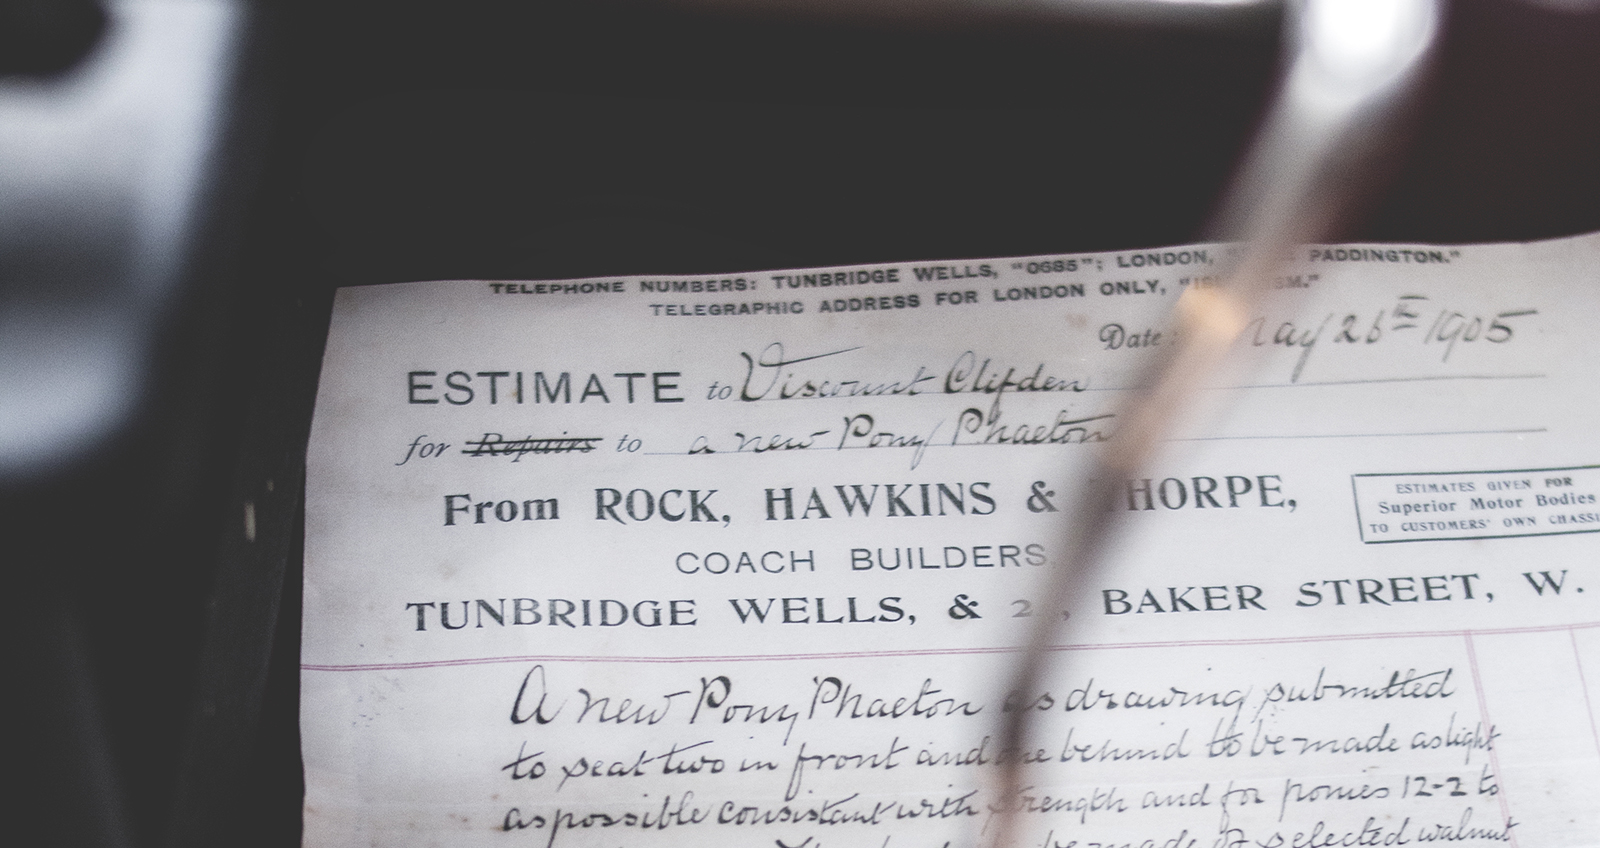 TELEPHONE NUMBERS: TUNBRIDGE WELLS, "0685"; LONDON, PADDINGTON."
TELEGRAPHIC ADDRESS FOR LONDON ONLY,
Date: May 26th 1905
ESTIMATE to Viscount Clifden
for Repairs to a new Pony Phaeton
From ROCK, HAWKINS & THORPE,
ESTIMATES GIVEN FOR
Superior Motor Bodies
TO CUSTOMERS' OWN CHASSI
COACH BUILDERS,
TUNBRIDGE WELLS, & BAKER STREET, W.
A new Pony Phaeton as drawing submitted
to seat two in front and one behind to be made as light
as possible consistant with strength and for ponies 12-2 to
be made of selected walnut